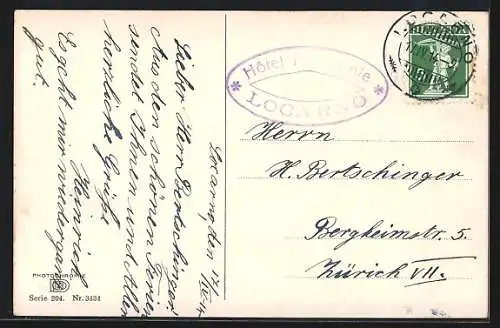 Locarno, den 17/IV.
Lieber Herr Bertschinger!
Aus den schönen Ferien
sendet Ihnen und Allen
herzliche Grüße
Heinrich
Es geht mir wieder ganz
gut.
PHOTOCHROMIE
Serie 204. Nr. 3434
Hôtel
LOCARNO
LOCARNO
HELVETIA
Herrn
H. Bertschinger
Bergheimstr. 5.
Zürich VII.